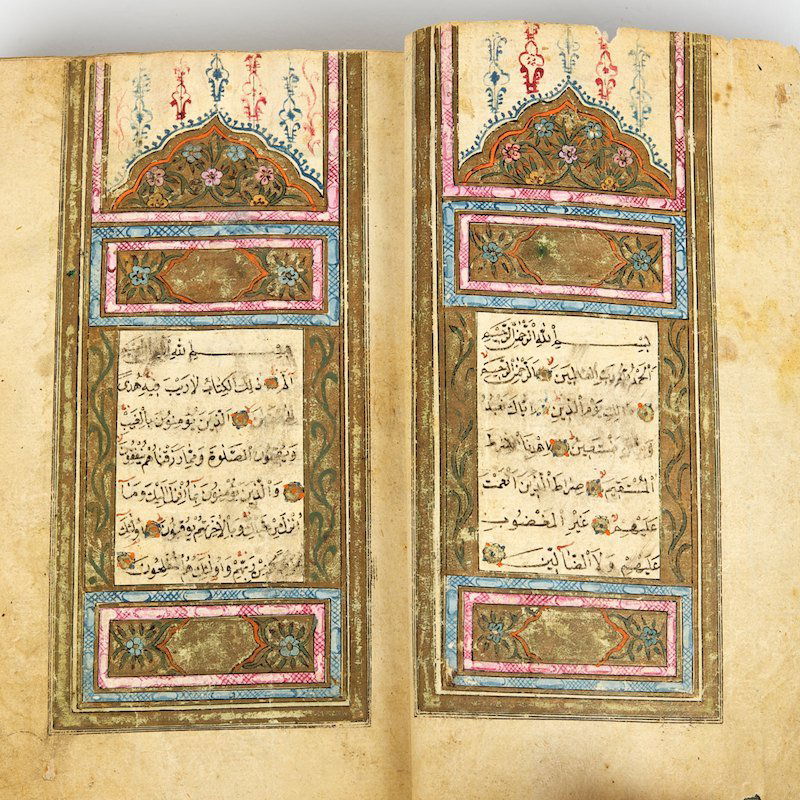 بِسْمِ اللّٰهِ الرَّحْمٰنِ الرَّحِيمِ
اَلْحَمْدُ لِلّٰهِ رَبِّ الْعَالَمِينَ الرَّحْمٰنِ الرَّحِيمِ
مَالِكِ يَوْمِ الدِّينِ اِيَّاكَ نَعْبُدُ
وَاِيَّاكَ نَسْتَعِينُ اِهْدِنَا الصِّرَاطَ
الْمُسْتَقِيمَ صِرَاطَ الَّذِينَ اَنْعَمْتَ
عَلَيْهِمْ غَيْرِ الْمَغْضُوبِ
عَلَيْهِمْ وَلَا الضَّآلِّينَ
بِسْمِ اللّٰهِ
الٓمٓ ذٰلِكَ الْكِتَابُ لَا رَيْبَ فِيهِ هُدًى
لِلْمُتَّقِينَ اَلَّذِينَ يُؤْمِنُونَ بِالْغَيْبِ
وَيُقِيمُونَ الصَّلٰوةَ وَمِمَّا رَزَقْنَاهُمْ يُنْفِقُونَ
وَالَّذِينَ يُؤْمِنُونَ بِمَآ اُنْزِلَ اِلَيْكَ وَمَآ
اُنْزِلَ مِنْ قَبْلِكَ وَبِالْاٰخِرَةِ هُمْ يُوقِنُونَ اُولٰٓئِكَ
مِنْ رَبِّهِمْ وَاُولٰٓئِكَ هُمُ الْمُفْلِحُونَ